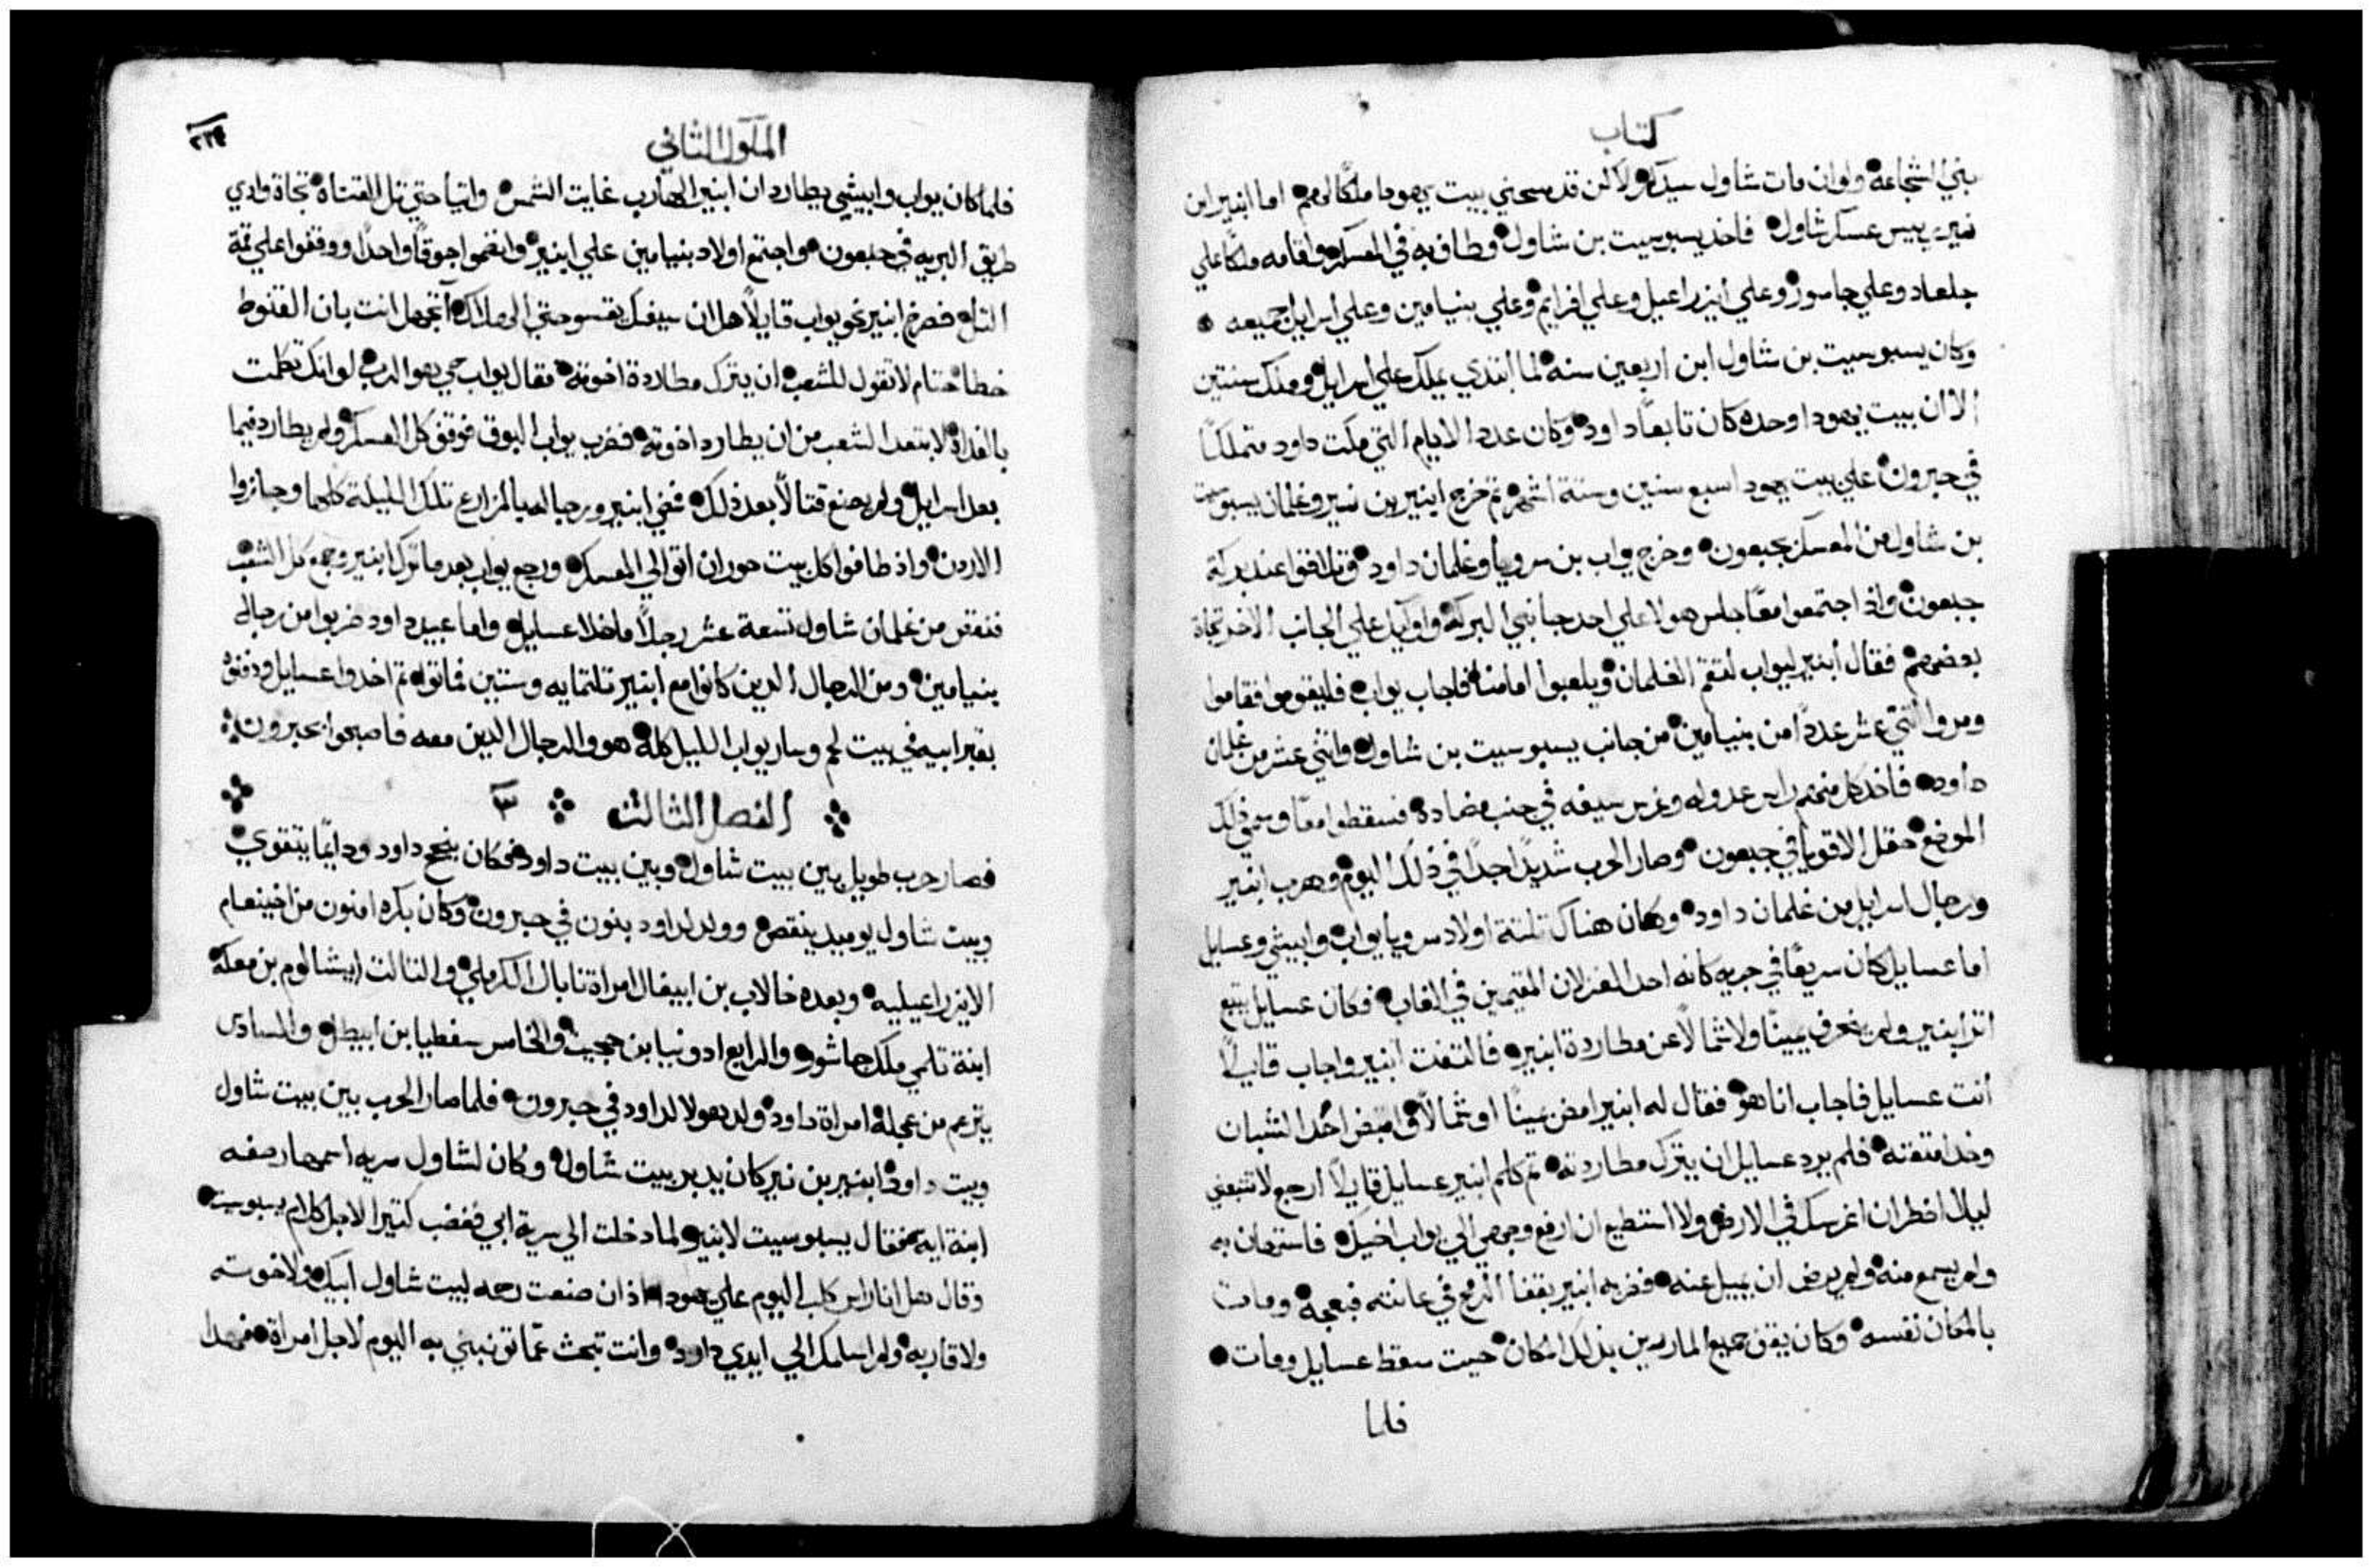 كتاب
بني الشجاعه ولوان مات شاول سيدكم ولاكن قد مسحني بيت يهودا ملكًا لهم اما ابنير ابن
نير رييس عسكر شاول فاخذ يسبوسيت بن شاول وطاف به في المعسكر واقامه ملكًا علي
جلعاد وعلي جاسور وعلي ايزراعيل وعلي افرايم وعلي بنيامين وعلي اسرايل جميعه
وكان يسبوسيت بن شاول ابن اربعين سنه لما ابتدي يملك علي اسرايل وملك سنتين
الا ان بيت يهودا وحده كان تابعًا داود وكان عدد الايام التي مكت داود متملكًا
في حبرون علي بيت يهودا سبع سنين وستة اشهر تم خرج ابنير بن نير وغلمان يسبوسيت
بن شاول من المعسكر بجبعون وخرج يواب بن سرويا وغلمان داود وتلاقوا عند بركة
جبعون واذ اجتمعوا معًا جلس هولا علي احد جانبي البركة واوليك علي الجانب الاخر تجاة
بعضهم فقال ابنير ليواب لتقم الغلمان ويلعبوا امامنا فاجاب يواب فليقوموا فقاموا
ومروا اتني عشر عددًا من بنيامين من جانب يسبوسيت بن شاول واتني عشر من غلمان
داود فاخد كل منهم راس عدوله وغرس سيفه في جنب مضاده فسقطوا معًا وسمي ذلك
الموضع حقل الاقويا في جبعون وصار الحرب شديدًا جدًا في ذلك اليوم وهرب ابنير
ورجال اسرايل من غلمان داود وكان هناك تلتة اولاد سرويا يواب وابيشي وعسايل
اما عسايل كان سريعًا في جريه كانه احد الغزلان المقيمين في الغاب فكان عسايل يتبع
اتر ابنير ولم ينحرف يمينًا ولا شمالًا عن مطاردة ابنير فالتفت ابنير واجاب قايلًا
أنت عسايل فاجاب انا هو فقال له ابنير امض يمينًا او شمالًا واقبض احد الشبان
وخد امتعته فلم يرد عسايل ان يترك مطاردته تم كلم ابنير عسايل قايلًا ارجع لا تتبعني
ليلا اضطر ان اغرسك في الارض ولا استطيع ان ارفع وجهي الي يواب اخيك فاستهان به
ولم يسمع منه ولم يرض ان يميل عنه فضربه ابنير بقفا الرمح في عانته فبعجه ومات
بالمكان نفسه وكان يقف جميع المارين بذلك المكان حيت سقط عسايل ومات
فلما
الملوك الثاني
٢٢٩
فلما كان يواب وابيشي يطاردان ابنير الهارب غابت الشمس واتيا حتي تل القناة تجاة وادي
طريق البريه في جبعون واجتمع اولاد بنيامين علي ابنير وانضموا جوقًا واحدًا ووقفوا علي قمة
التل فصرخ ابنير نحو يواب قايلًا هل ان سيفك يقسو حتي الهلاك أتجهل انت بان القنوط
خطا حتام لا تقول للشعب ان يترك مطاردة اخوته فقال يواب حي هو الرب لو انك تكلمت
بالغداة لابتعد الشعب من ان يطارد اخوته فضرب يواب البوق فوقف كل العسكر ولم يطارد فيما
بعد اسرايل ولم يصنع قتالًا بعد ذلك فمضي ابنير ورجاله بالمزارع تلك الليلة كلها وجازوا
الاردن واذ طافوا كل بيت حوران اتوا الي المعسكر ورجع يواب بعد ما ترك ابنير وجمع كل الشعب
فنقص من غلمان شاول تسعة عشر رجلًا ماخلا عسايل واما عبيد داود ضربوا من رجال
بنيامين ومن الرجال الدين كانوا مع ابنير تلتمايه وستين فماتوا تم اخدوا عسايل ودفنوه
بقبر ابيه في بيت لحم وسار يواب الليل كله هو والرجال الدين معه فاصبحوا بحبرون
الفصل الثالث ٣
فصار حرب طويل بين بيت شاول وبين بيت داود فكان ينجح داود ودايمًا يتقوي
وبيت شاول يوميد ينقص وولد لداود بنون في حبرون وكان بكره امنون من اخينعام
الايزراعيليه وبعده خالاب بن ابيغال امراة نابال الكرملي والتالت ابيشالوم بن معكة
ابنة تلمي ملك جاشور والرابع ادونيا بن حجيت والخامس سفطيا بن ابيطل والسادس
يترعم من عجلة امراة داود ولد هولا لداود في حبرون فلما صار الحرب بين بيت شاول
وبيت داود ابنير بن نير كان يدبر بيت شاول وكان لشاول سريه اسمها رصفه
ابنة ايه فقال يسبوسيت لابنير لما دخلت الي سرية ابي فغضب كتيرا لاجل كلام يسبوسيت
وقال هل انا راس كلب اليوم علي يهودا اذ ان صنعت رحمه لبيت شاول ابيك ولاخوته
ولاقاربه ولم اسلمك الي ايدي داود وانت تبحث عما توبنبني به اليوم لاجل امراة فهدا